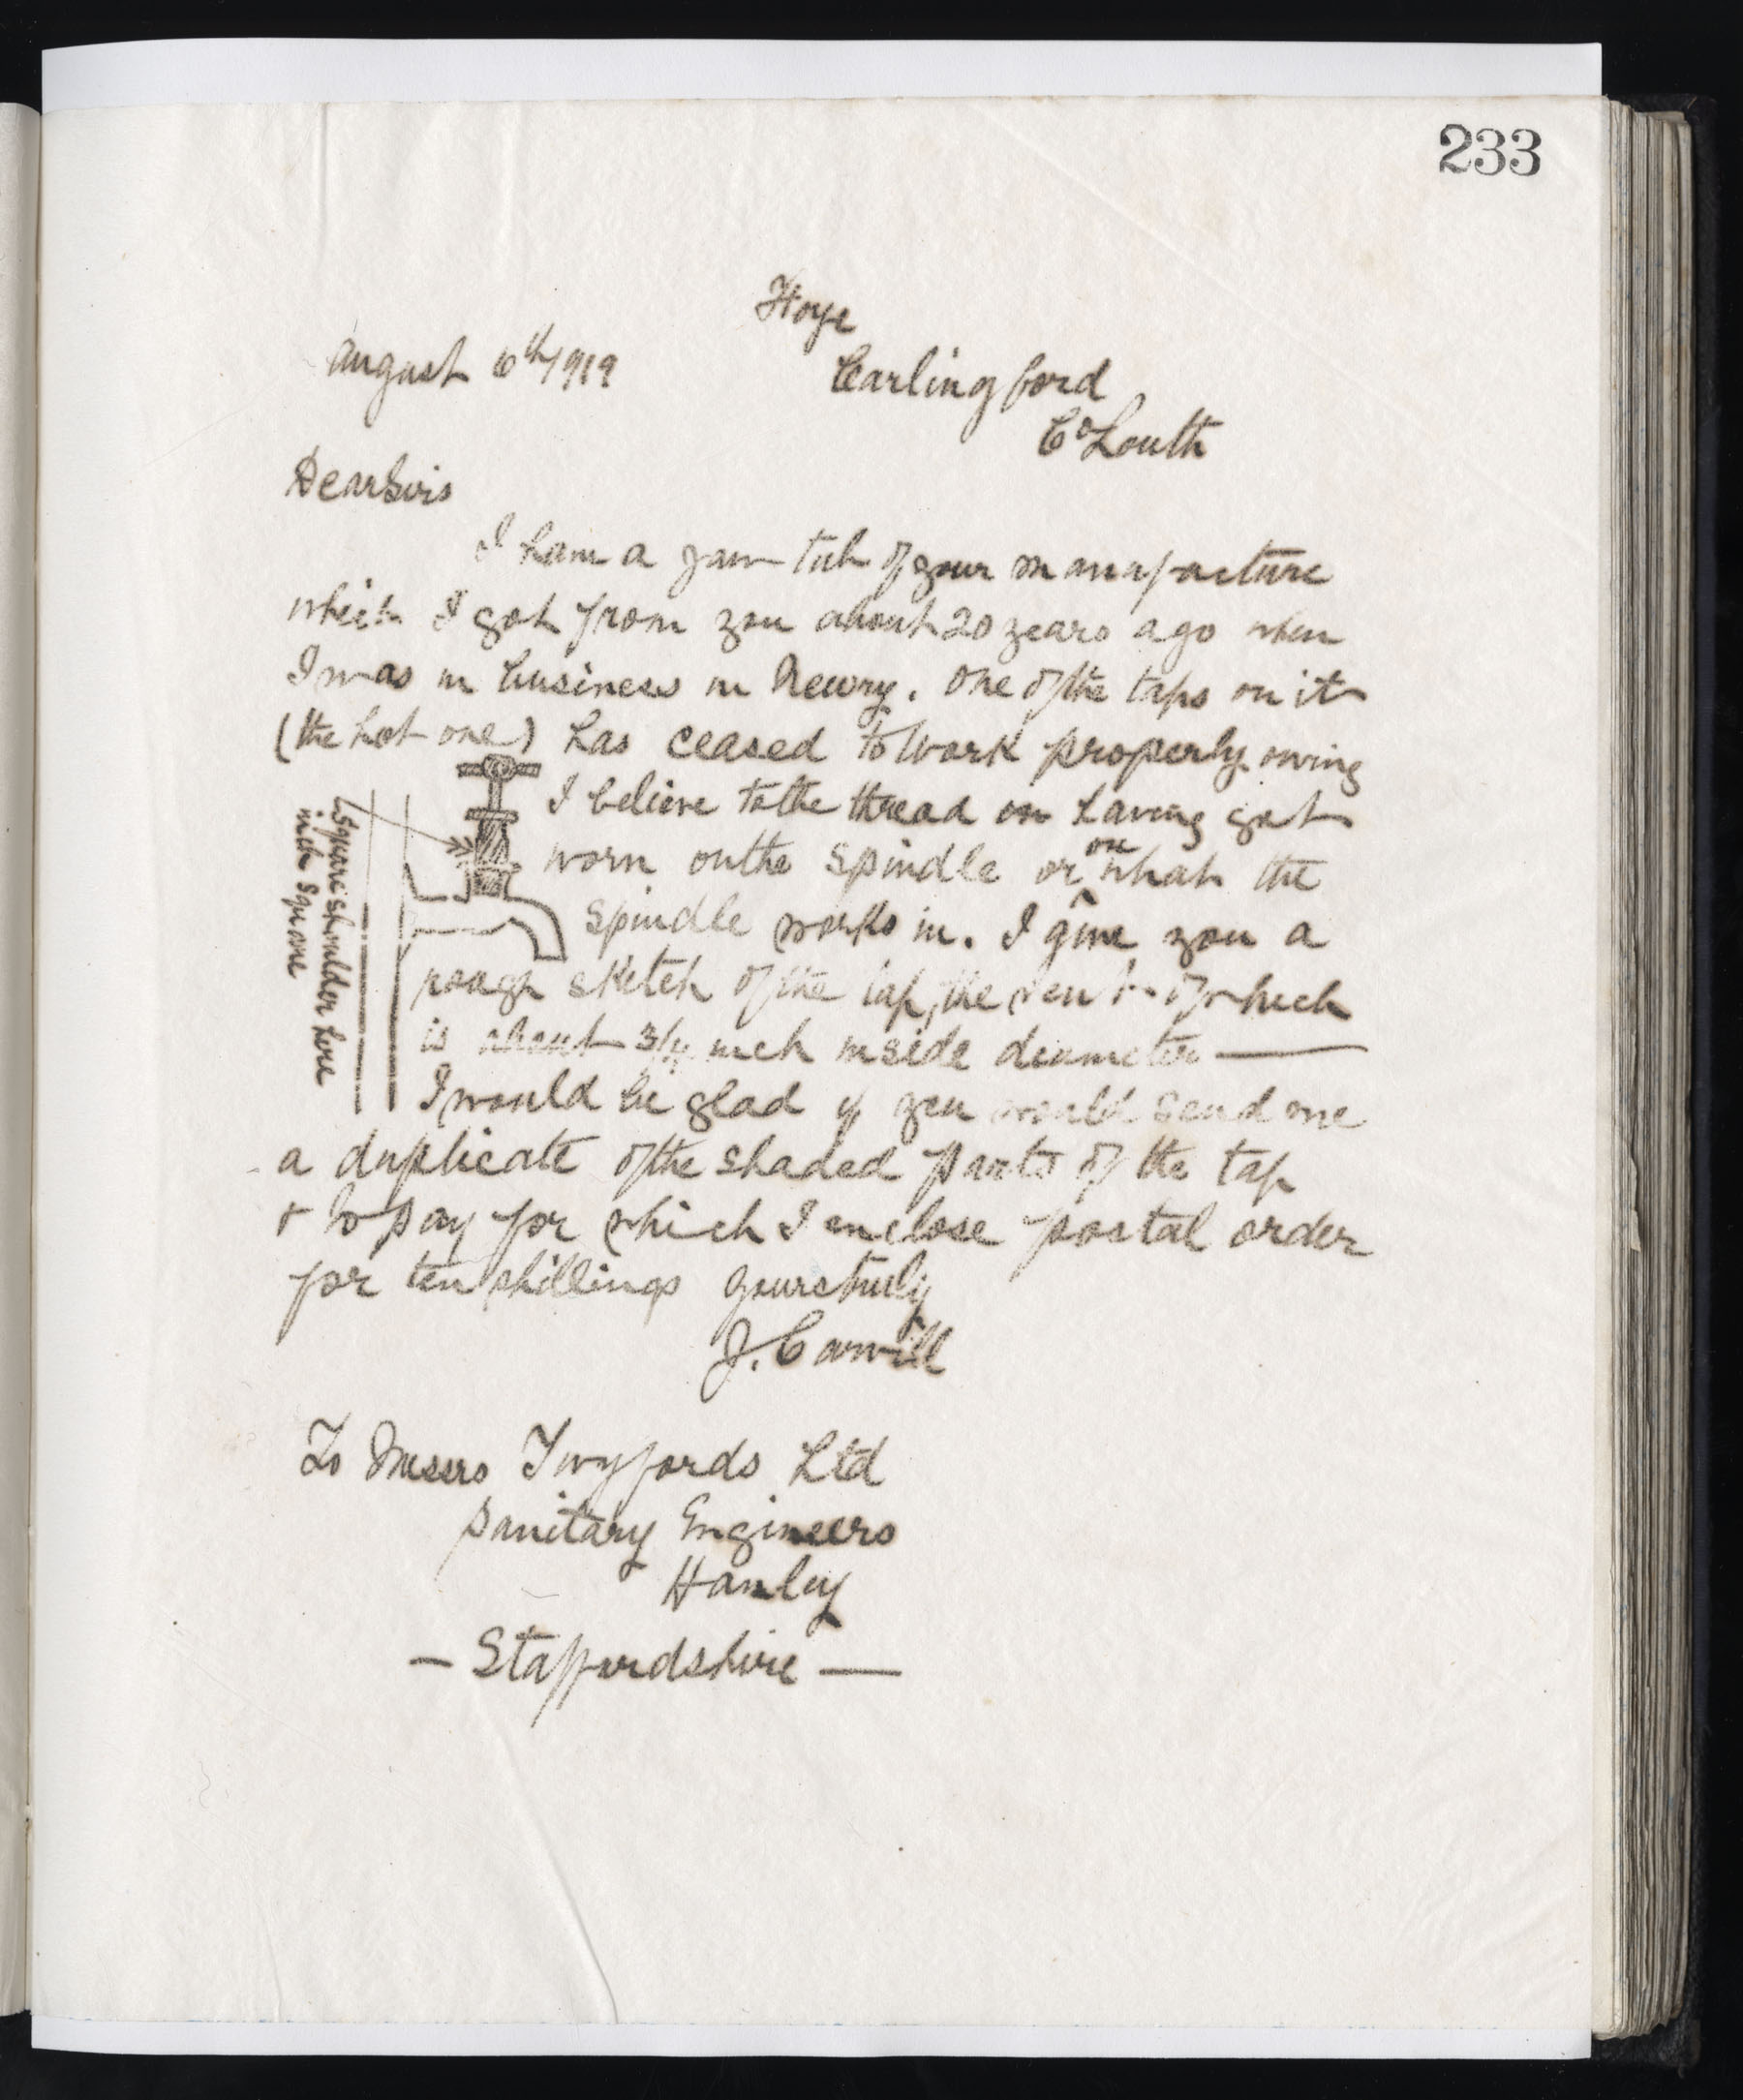 233
Hoye
August 6th/1919
Carlingford
Co Louth
Dear Sirs
I have a jaw tub of your manufacture
which I got from you about 20 years ago when
I was in business in Newry. One of the taps on it
(the hot one) has ceased to work properly owing
I believe to the thread on having got
worn on the spindle or on what the
spindle works in. I give you a
rough sketch of the tap, the of which
is about 3/4 inch inside diameter —
Square shoulder here
inch square
I would be glad if you would send me
a duplicate of the shaded parts of the tap
& to pay for which I enclose postal order
for ten shillings yours truly
J. Carvill
To Messrs Twyfords Ltd
Sanitary Engineers
Hanley
— Staffordshire —